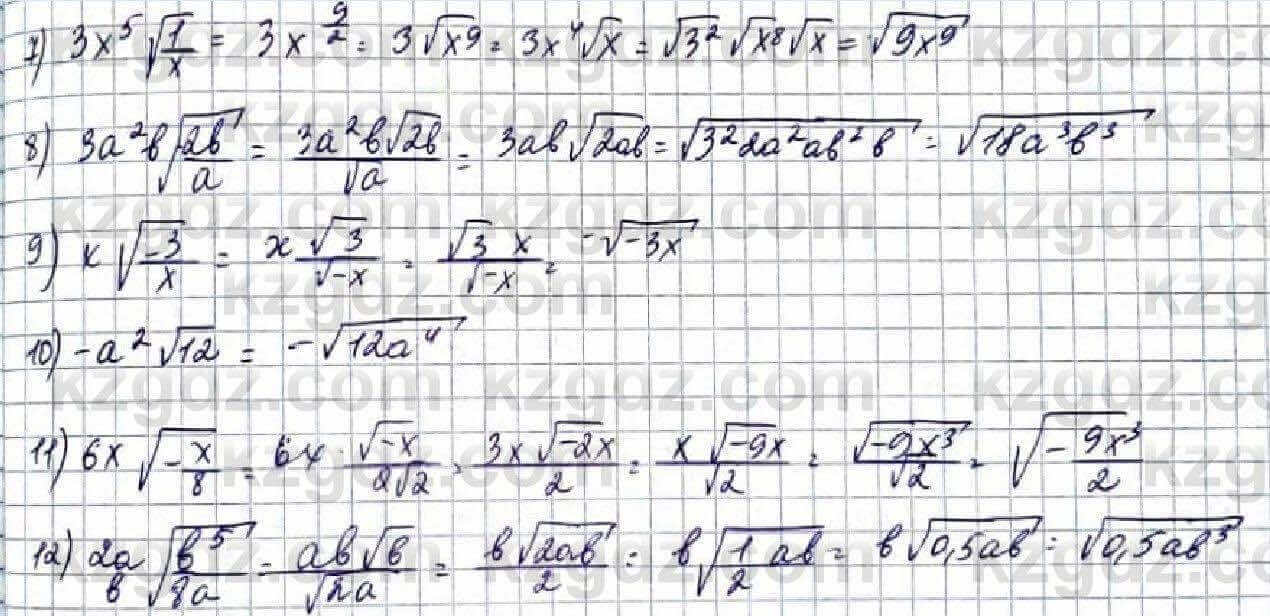 7) 3x^5 √(1/x) = 3x^(9/2) = 3√x^9 = 3x^4√x = √3^2 √x^8 √x = √(9x^9)
8) 3a^2b√(2b/a) = (3a^2b√2b)/√a = 3ab√2ab = √(3^2 2a^2ab^2b) = √(18a^3b^3)
9) x√(-3/x) = x √3/√-x = (√3 x)/√-x = -√(-3x)
10) -a^2√12 = -√(12a^4)
11) 6x √(-x/8) = 6x · √-x/(2√2) = (3x√-2x)/2 = (x√-9x)/√2 = √(-9x^3)/√2 = √(-9x^3/2)
12) 2a/b √(b^5/8a) = (ab√b)/√2a = (b√2ab)/2 = b√(1/2 ab) = b√(0,5ab) = √(0,5ab^3)
kzgdz.com